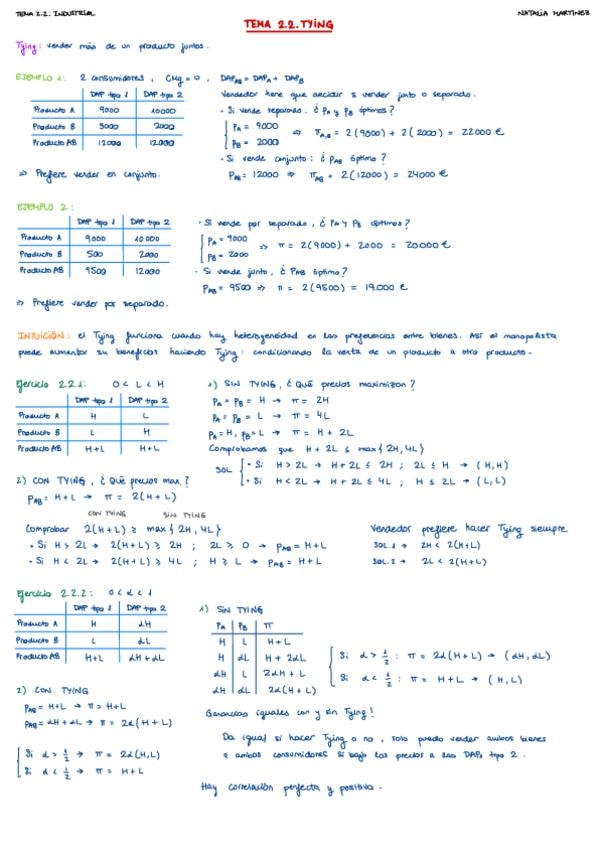 TEMA 2.2. INDUSTRIAL
NATALIA MARTÍNEZ
TEMA 2.2. TYING
Tying: vender más de un producto juntos.
EJEMPLO 1: 2 consumidores, CMg = 0, DAP_AB = DAP_A + DAP_B
DAP tipo 1 DAP tipo 2
Producto A 9000 10000
Producto B 3000 2000
Producto AB 12000 12000
⇒ Prefiere vender en conjunto.
Vendedor tiene que decidir si vender junto o separado.
· Si vende separado, ¿ P_A y P_B óptimos?
P_A = 9000
P_B = 2000
⇒ π_A,B = 2(9000) + 2(2000) = 22000 €
· Si vende conjunto: ¿ P_AB óptimo?
P_AB = 12000 ⇒ π_AB = 2(12000) = 24000 €
EJEMPLO 2:
DAP tipo 1 DAP tipo 2
Producto A 9000 10000
Producto B 500 2000
Producto AB 9500 12000
⇒ Prefiere vender por separado.
· Si vende por separado, ¿ P_A y P_B óptimos?
P_A = 9000
P_B = 2000
⇒ π = 2(9000) + 2000 = 20000 €
· Si vende junto, ¿ P_AB óptimo?
P_AB = 9500 ⇒ π = 2(9500) = 19000 €
INTUICIÓN: el Tying funciona cuando hay heterogeneidad en las preferencias entre bienes. Así el monopolista
puede aumentar su beneficios haciendo Tying: condicionando la venta de un producto a otro producto.
Ejercicio 2.2.1: 0 < L < H
DAP tipo 1 DAP tipo 2
Producto A H L
Producto B L H
Producto AB H+L H+L
1) SIN TYING, ¿ Qué precios maximizan?
P_A = P_B = H → π = 2H
P_A = P_B = L → π = 4L
P_A = H, P_B = L → π = H + 2L
Comprobamos que H + 2L ≤ max{2H, 4L}
SOL
· Si H > 2L → H + 2L ≤ 2H ; 2L ≤ H → (H, H)
· Si H < 2L → H + 2L ≤ 4L ; H ≤ 2L → (L, L)
2) CON TYING, ¿ Qué precios max.?
P_AB = H + L → π = 2(H + L)
CON TYING SIN TYING
Comprobar 2(H+L) ≥ max{2H, 4L}
· Si H > 2L → 2(H+L) ≥ 2H ; 2L ≥ 0 → P_AB = H+L
· Si H < 2L → 2(H+L) ≥ 4L ; H ≥ L → P_AB = H+L
Vendedor prefiere hacer Tying siempre
SOL.1 → 2H < 2(H+L)
SOL.2 → 2L < 2(H+L)
Ejercicio 2.2.2: 0 < α < 1
DAP tipo 1 DAP tipo 2
Producto A H αH
Producto B L αL
Producto AB H+L αH + αL
1) SIN TYING
P_A P_B π
H L H + L
H αL H + 2αL
αH L 2αH + L
αH αL 2α(H + L)
Si α > 1/2 : π = 2α(H + L) → (αH, αL)
Si α < 1/2 : π = H + L → (H, L)
Ganancias iguales con y sin Tying!
Da igual si hacer Tying o no, solo puedo vender ambos bienes
a ambos consumidores si bajo los precios a las DAPs tipo 2.
Hay correlación perfecta y positiva.
2) CON TYING
P_AB = H+L → π = H+L
P_AB = αH + αL → π = 2α(H + L)
Si α > 1/2 → π = 2α(H, L)
Si α < 1/2 → π = H + L